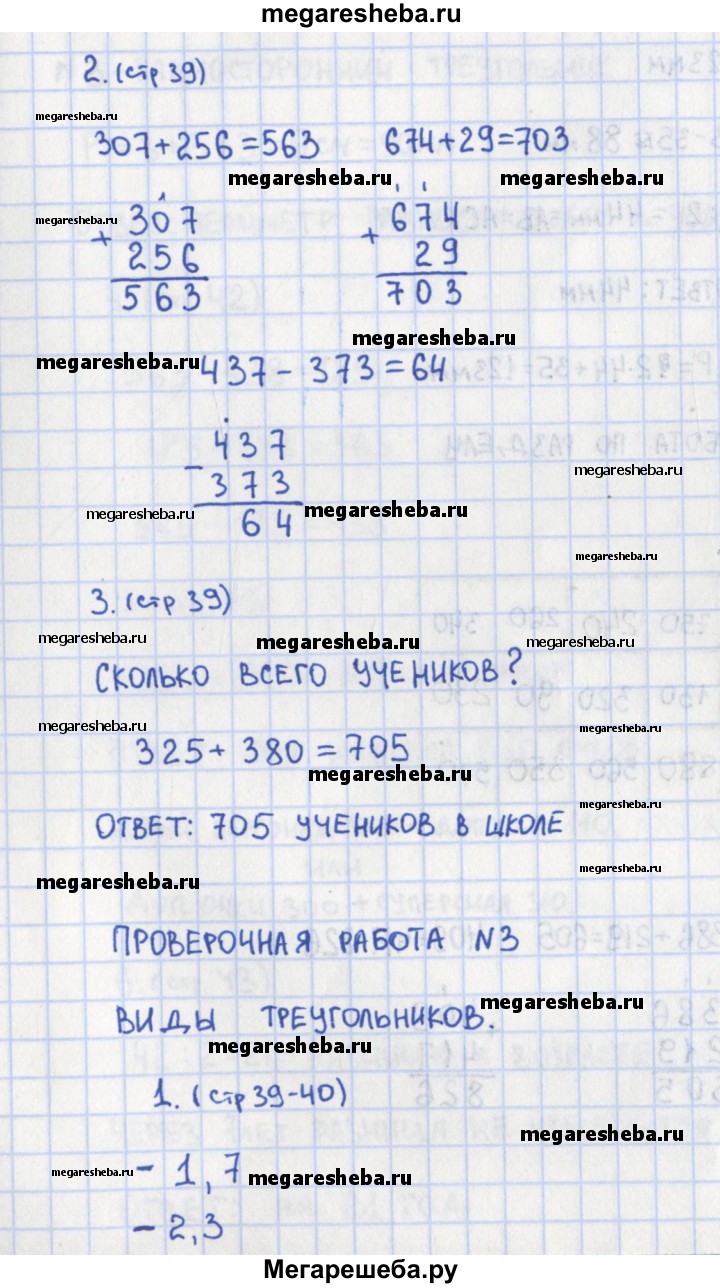 megaresheba.ru
2. (стр 39)
megaresheba.ru
307+256=563 674+29=703
megaresheba.ru megaresheba.ru
megaresheba.ru
+ 307 + 674
256 29
563 703
megaresheba.ru
megaresheba.ru
437-373=64
- 437
373
64
megaresheba.ru
megaresheba.ru megaresheba.ru
megaresheba.ru
3. (стр 39)
megaresheba.ru megaresheba.ru megaresheba.ru
СКОЛЬКО ВСЕГО УЧЕНИКОВ?
megaresheba.ru megaresheba.ru
325+380=705
megaresheba.ru
megaresheba.ru
ОТВЕТ: 705 УЧЕНИКОВ В ШКОЛЕ
megaresheba.ru
megaresheba.ru
ПРОВЕРОЧНАЯ РАБОТА N3
megaresheba.ru
ВИДЫ ТРЕУГОЛЬНИКОВ.
megaresheba.ru
1. (стр 39-40)
megaresheba.ru
megaresheba.ru - 1,7 megaresheba.ru
- 2,3
Мегарешеба.ру